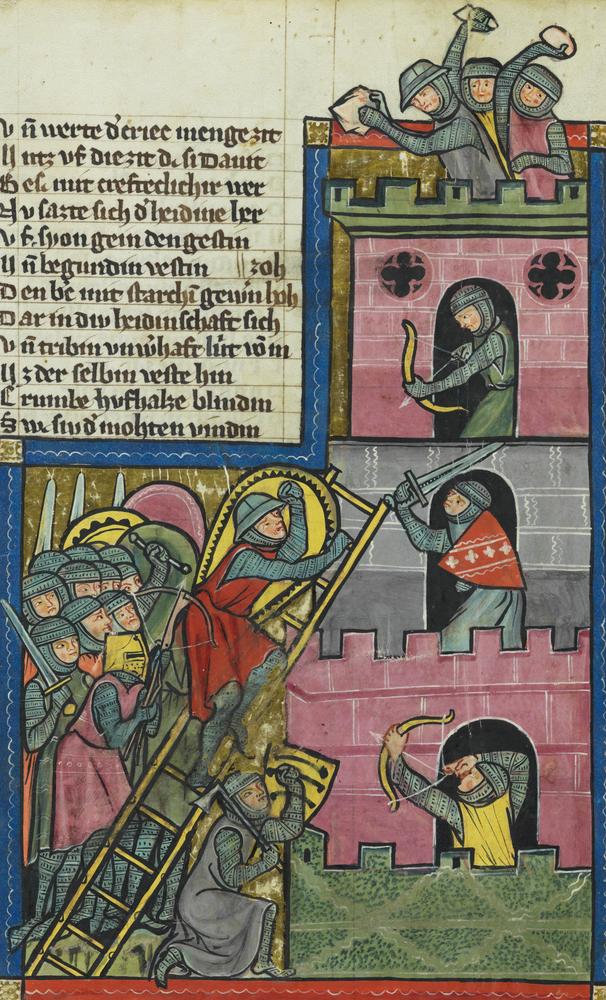 V n̄ werte d᾽ criec menge zit
U ntz vf die zit d. si Dauit
B es. mit crefteclichir wer
N v sazte sich d᾽ heidine her
V f. syon gein den gestin
V n̄ begundin vestin || zoh
D en b᾽c mit starchī hoh
D ar in div heidinschaft sich
V n̄ tribin vnw᾽haft lvt võ in
U z der selbin veste hin
C rumbe hvfhalze blindin
S w. siv d᾽ mohten vindin